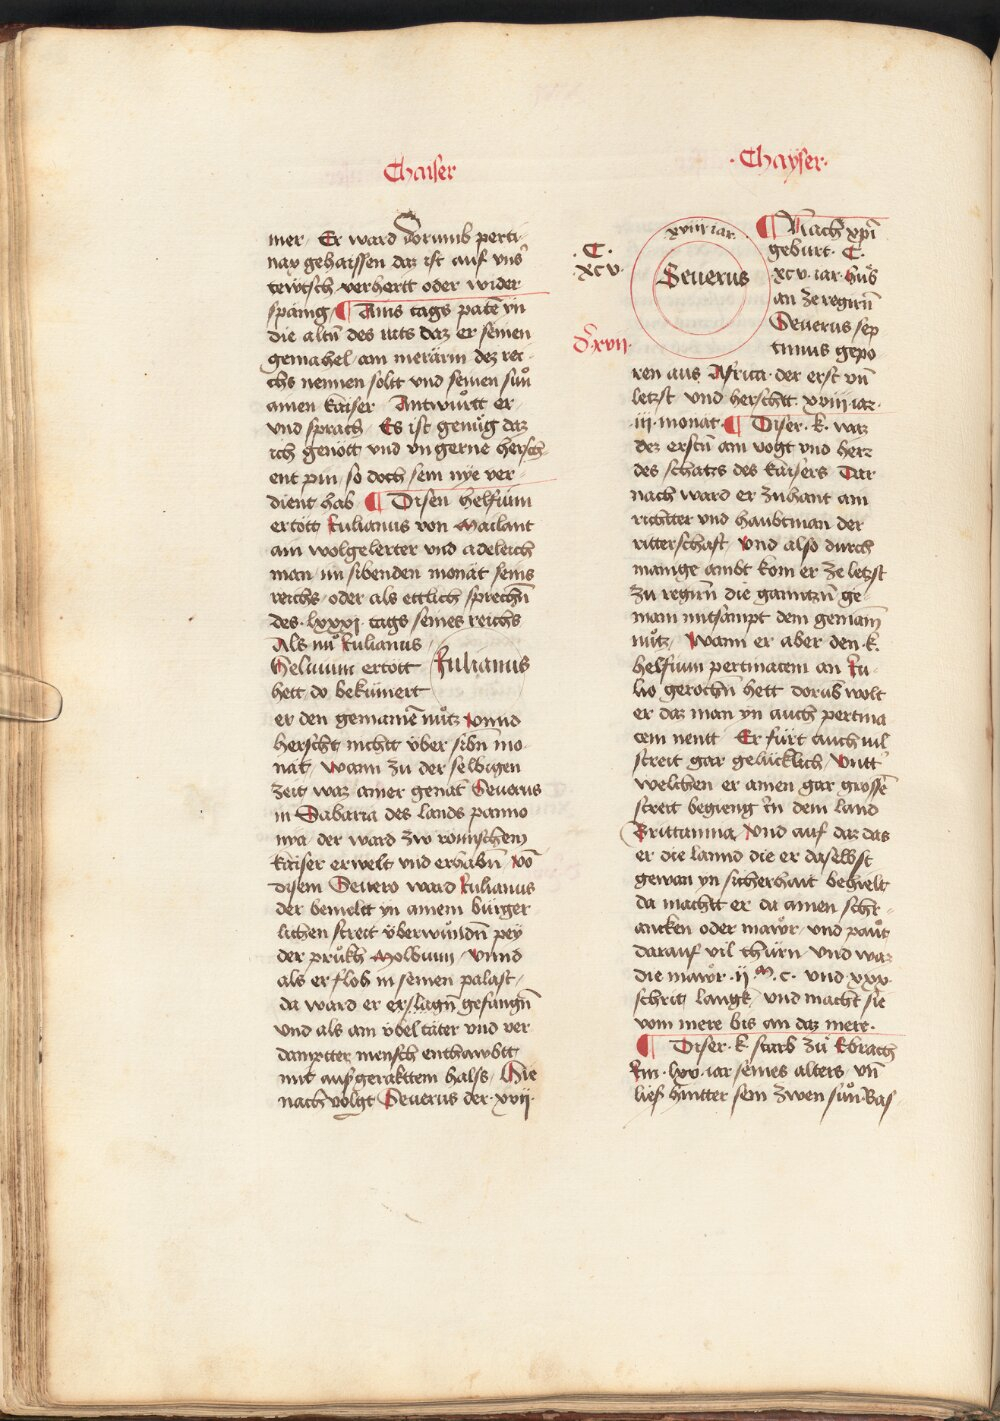 Chaiser
mer Er ward dorumb perti-
nax gehaissen daz ist auf vns'
tewtsch verhertt oder wider
späing ¶ Ains tags patē yn
die altn̄ des rats daz er seinen
gemahel am merärin dez rei-
chs nennen soltt vnd seinen sun
ainen kaiser Antwurtt er
vnd sprach Es ist genug daz
ich genött vnd vngerne hersch-
ent pin so doch sein nye ver-
dient hab ¶ Disen helfium
ertött Julianus von Mailant
ain wolgelerter vnd adeleich
man im sibenden monät seins
reichs oder als ettlich sprechn̄
des lxxxi tags seines reichs
Als nu Julianus
Heluium ertött
hett do bekümert
Julianus
er den gemainē nutz Vnnd
herscht nichtt über sibn̄ mo-
nat Wann zu der selbigen
zeit waz ainer genāt Seuerus
in Sabaria des lands panno
nya der ward zw römischem
kaiser erwelt vnd erhabn̄ Vō
disem Seuero ward Julianus
der bemeltt yn ainem bürger-
lichen streit überwundn̄ pey
der prukh Moluium Vnnd
als er floh in seinen palast
da ward er erslagn̄ gefangn̄
vnd als ain vbeltäter vnd ver
dampter mensch enthawbtt
mit aufgerakttem halss Hie
nach volgt Seuerus der xvij
·Chayser·
·C·
xcv
d' xvij
xviii iar
Seuerus
¶ Nach xpi
geburt · C ·
xcv iar hub
an ze regirn̄
Seuerus sep
timus gepo-
ren aus Africa der erst vn̄
letzst vnd herschtt xviii iar
iii monat ¶ Diser k. waz
dez erstn̄ am vogt vnd herr
des schatzs des kaisers Dar
nach ward er zuhant ain
richtter vnd haubtman der
ritterschaft Vnd also durch
manige ambt kom er ze letzst
zu regirn̄ die ganntzn̄ ge-
main mitsampt dem gemain̄
nutz Wann er aber den k.
helfium pertinacem an Ju-
lio gerochn̄ hett dorub wolt
er daz man yn auch pertina
cem nentt Er fürt auch uil
streit gar gelücklich Vntt'
welichen er ainen gar grossē
streit begieng in dem land
Brittannia Vnd auf daz das
er die lannd die er daselbst
gewan yn sicherhait behielt
da machtt er da ainen schr-
ancken oder mawr vnd paut
darauf vil thürn vnd waz
die mawr ii M. c. vnd xxx
schritt langk vnd macht sie
vom mere bis an daz mere.
¶ Diser k. starb zu Ebrach
Im lxv iar seines alters vn̄
liess hintter sein zwen sun Bas-